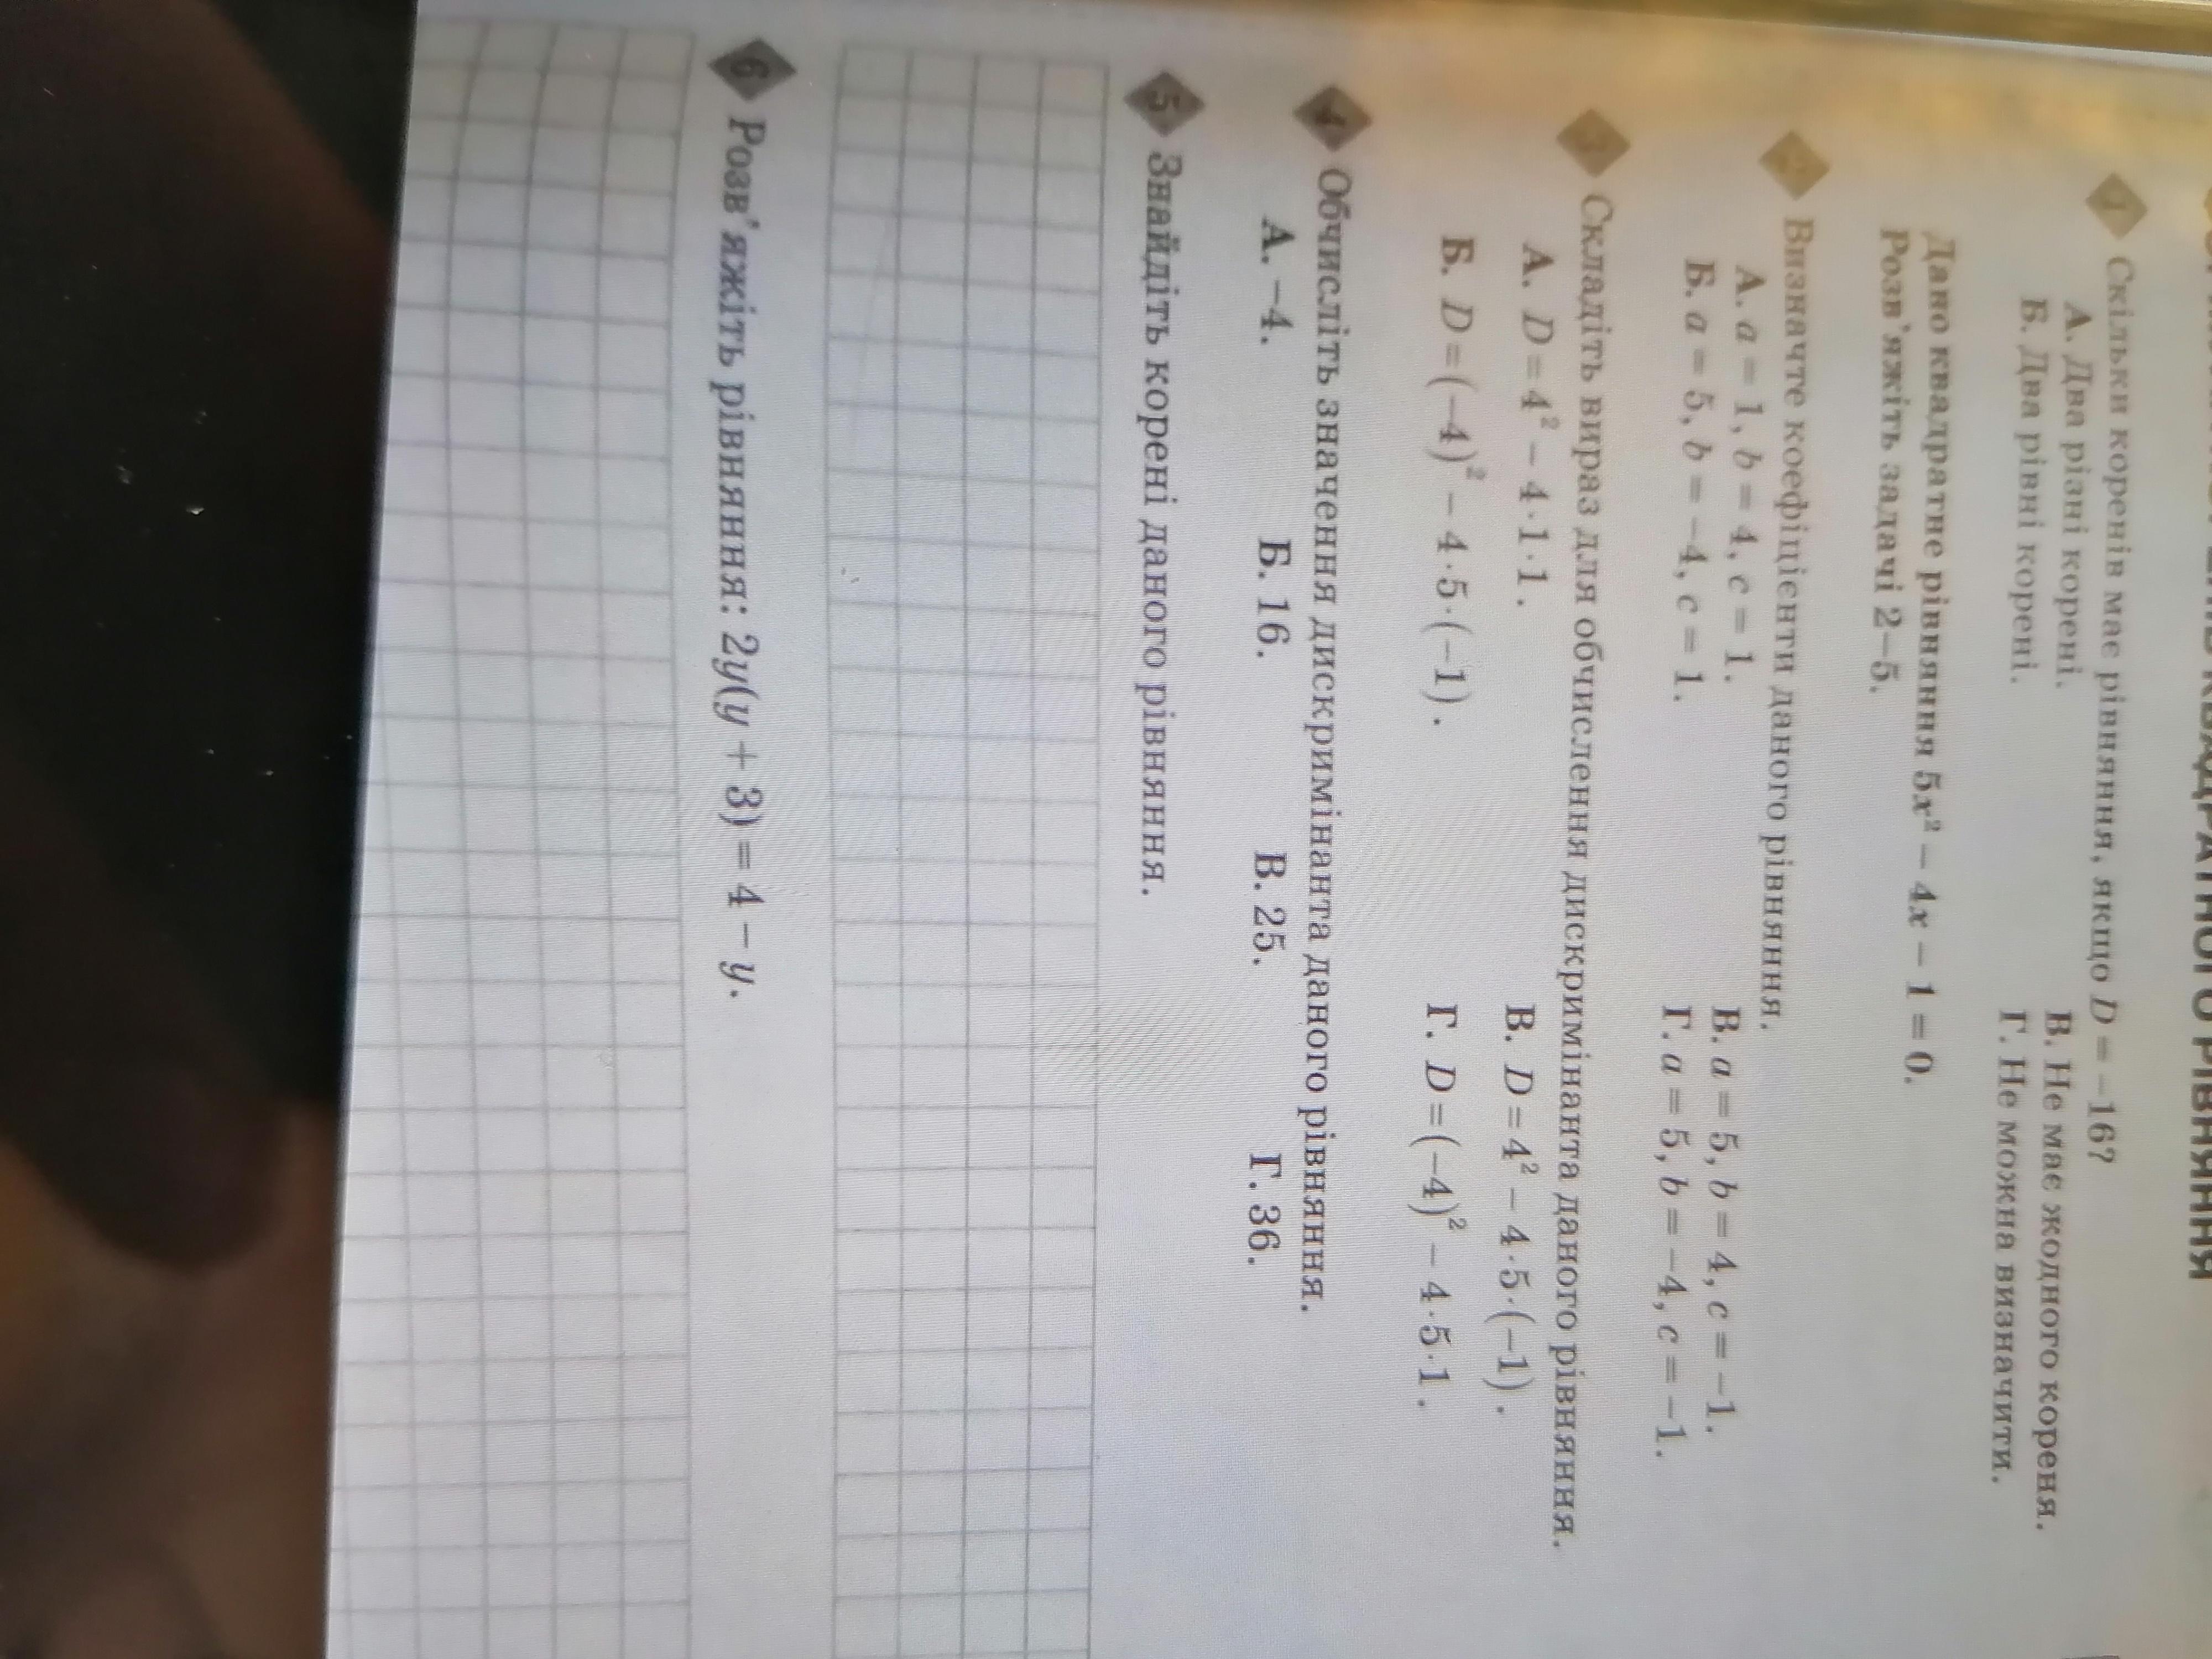 КВАДРАТНОГО РІВНЯННЯ
1 Скільки коренів має рівняння, якщо D = −16?
А. Два різні корені. В. Не має жодного кореня.
Б. Два рівні корені. Г. Не можна визначити.
Дано квадратне рівняння 5x² − 4x − 1 = 0.
Розв'яжіть задачі 2–5.
2 Визначте коефіцієнти даного рівняння.
А. a = 1, b = 4, c = 1. В. a = 5, b = 4, c = −1.
Б. a = 5, b = −4, c = 1. Г. a = 5, b = −4, c = −1.
3 Складіть вираз для обчислення дискримінанта даного рівняння.
А. D = 4² − 4·1·1. В. D = 4² − 4·5·(−1).
Б. D = (−4)² − 4·5·(−1). Г. D = (−4)² − 4·5·1.
4 Обчисліть значення дискримінанта даного рівняння.
А. −4. Б. 16. В. 25. Г. 36.
5 Знайдіть корені даного рівняння.
6 Розв'яжіть рівняння: 2y(y + 3) = 4 − y.